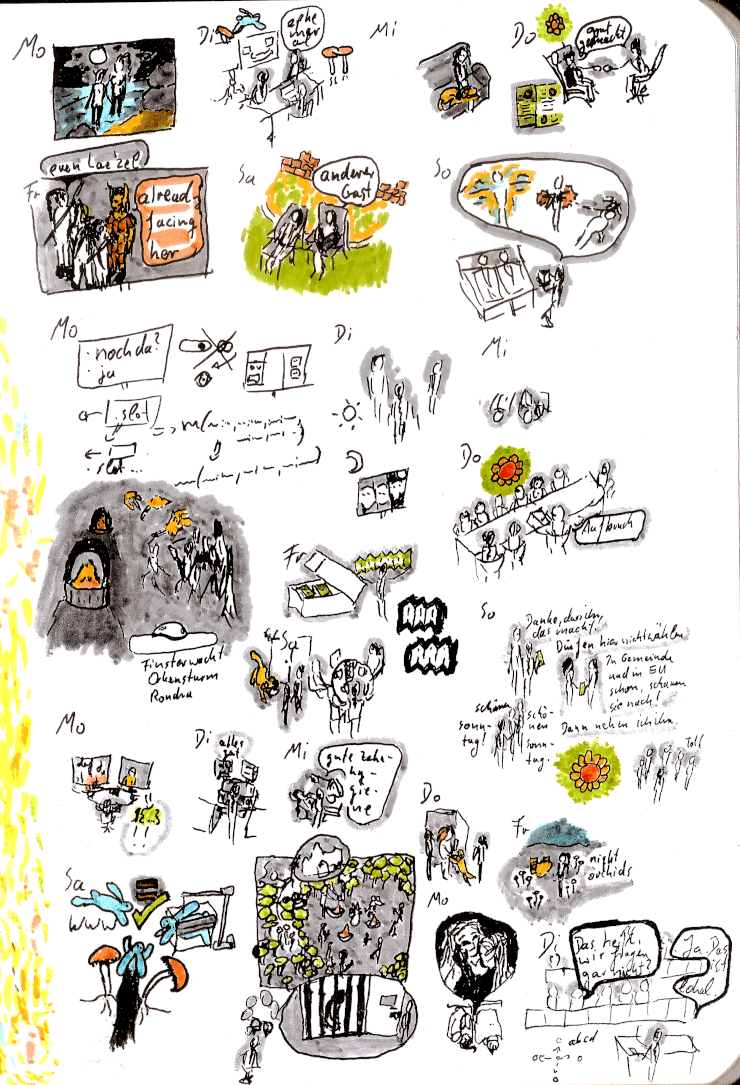 Mo
Di
ephe
mer
al
Mi
Do
gut
gemacht
even Lae'zel
Fr
alread
acing
her
Sa
anderer
Gast
So
Mo
noch da?
ja
.slot
slot...
Di
Mi
Do
Aufbruch
Fr
AAA
AAA
Sa
Finsterwacht
Orkensturm
Rondra
So
Danke, dass ihr
das macht.
Dürfen hier nicht wählen
In Gemeinde
und in EU
schon, schauen
sie nach!
Dann nehm ich ihn.
schönen
sonn-
tag!
schö-
nen
sonn-
tag.
Toll
Mo
Di
alles
gut
Mi
gute Zahn-
hy-
gie-
ne
Do
Fr
night
orchids
Sa
WWW
Mo
Di
Das heißt,
wir fragen
gar nicht!
Ja. Das
ist
abcd